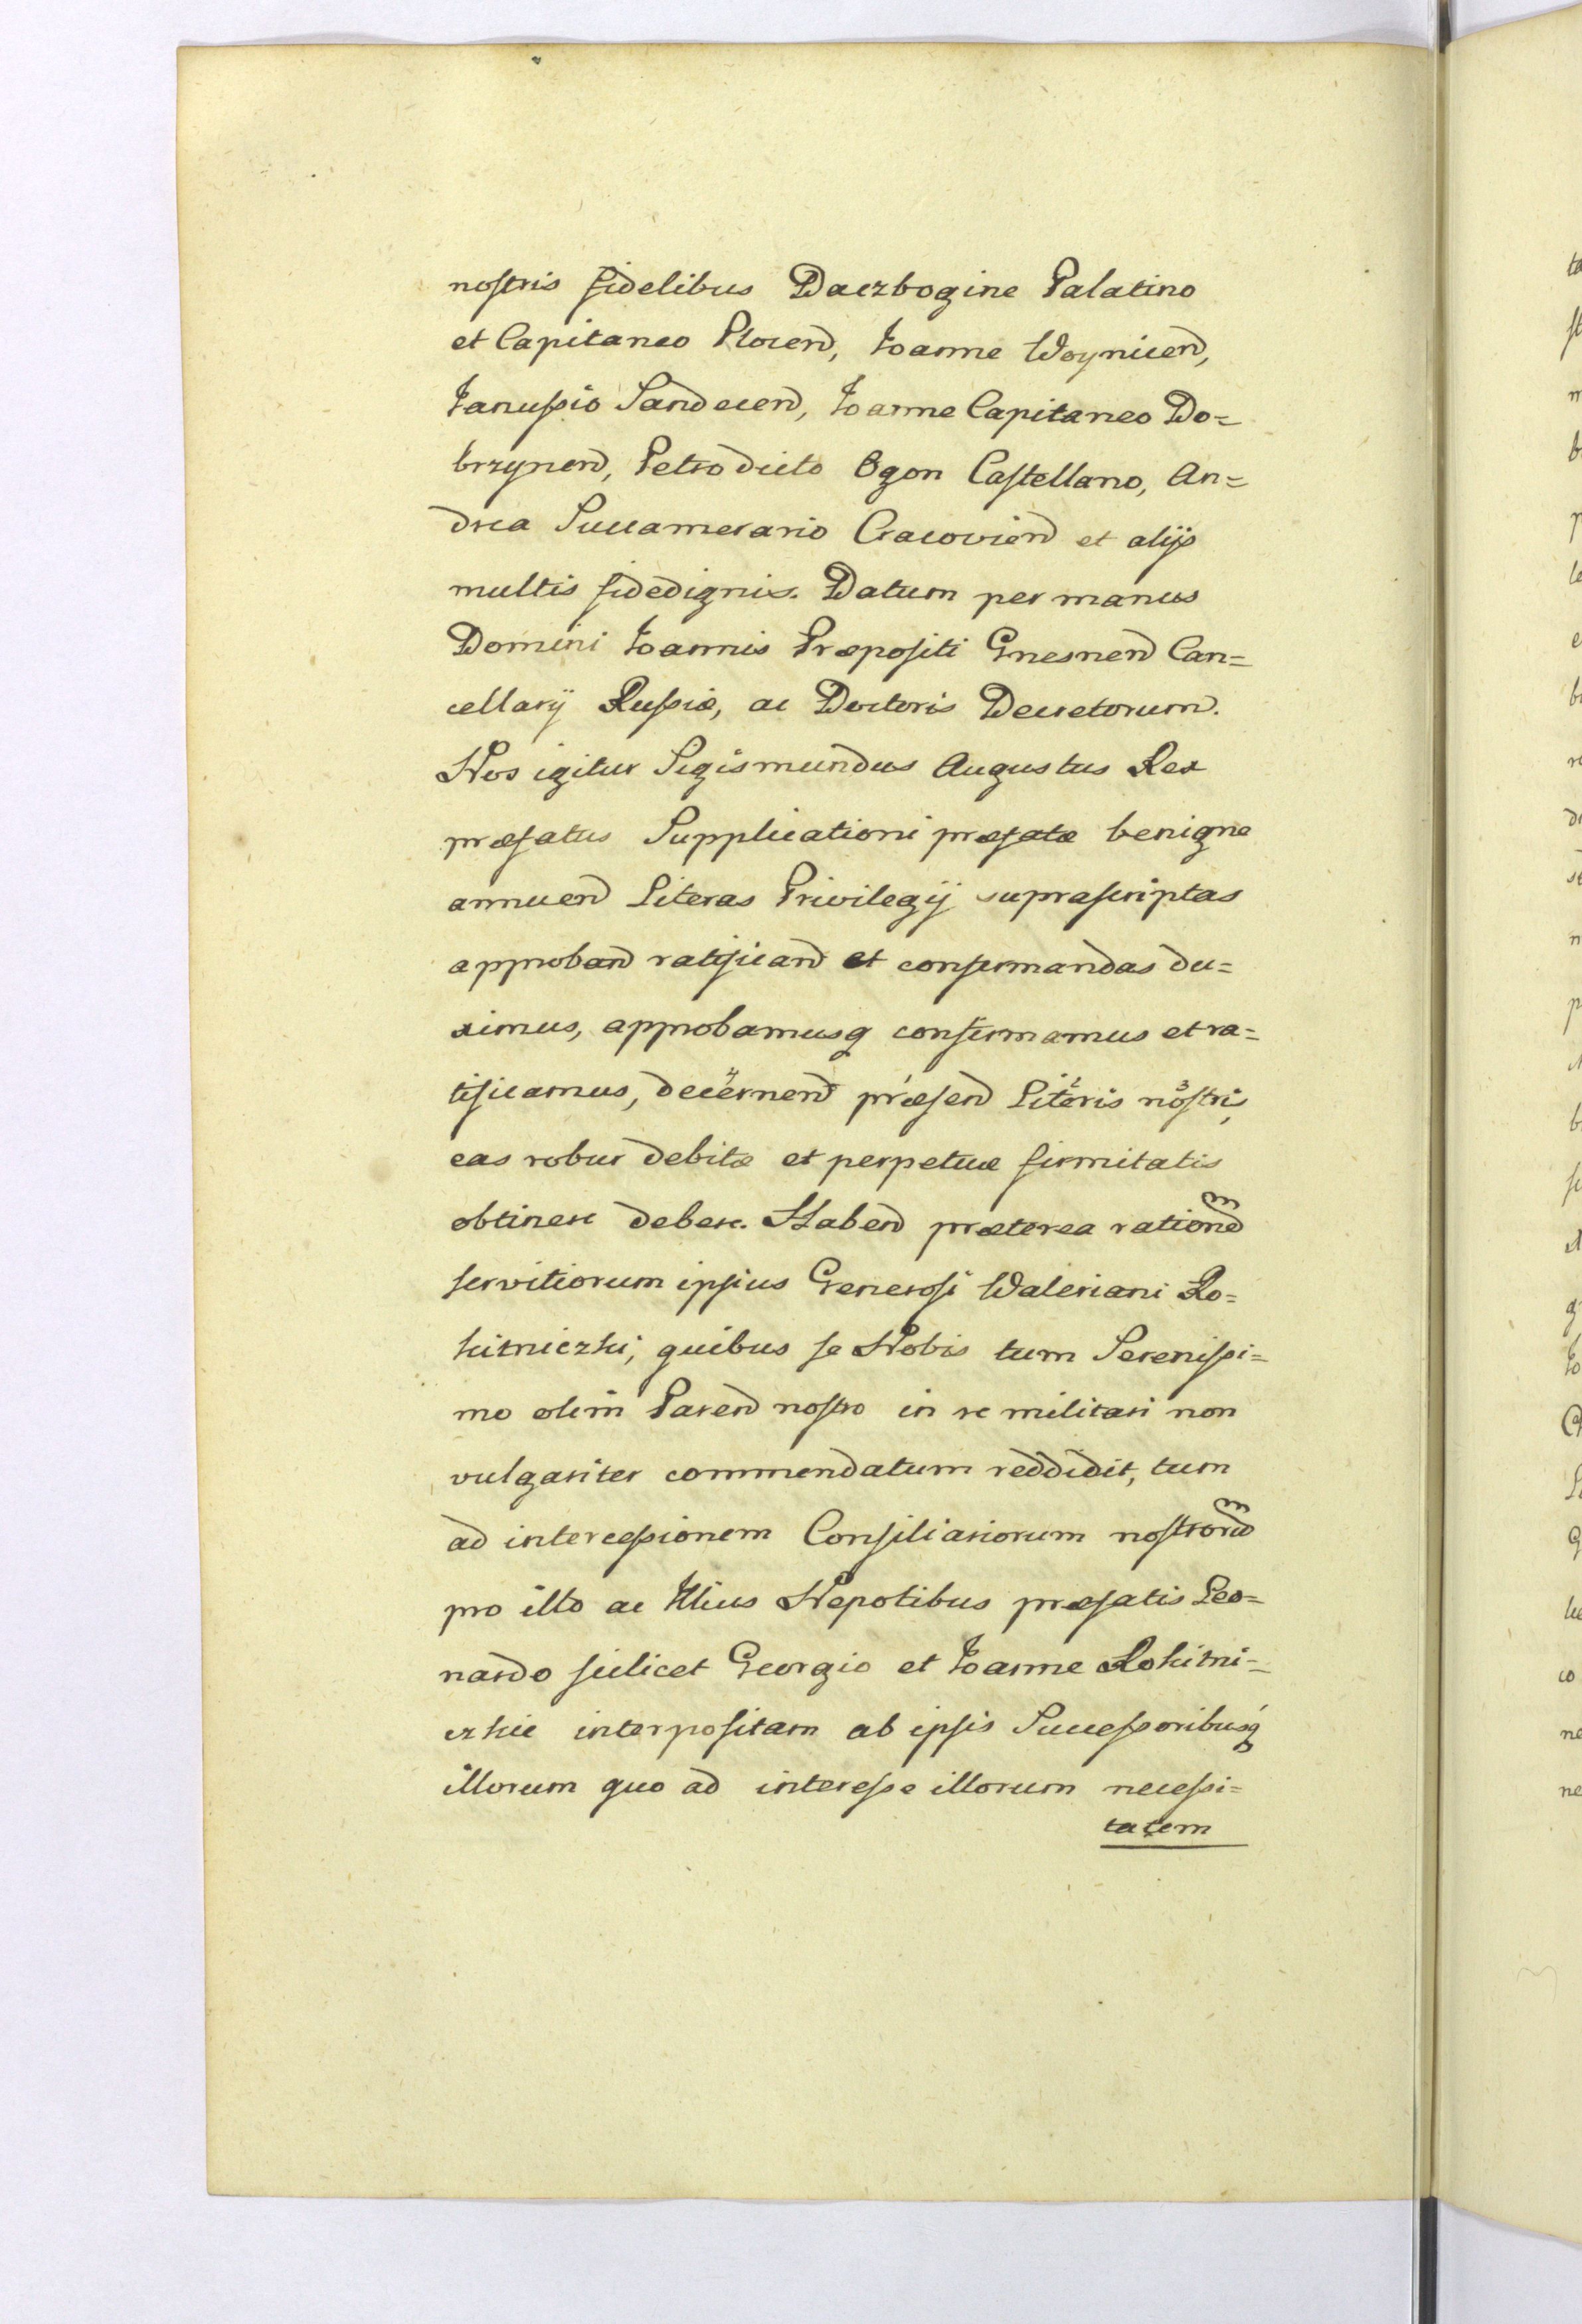 nostris fidelibus Daczbogine Palatino
et Capitaneo Plocen, Joanne Woynicen,
Janussio Sandecen, Joanne Capitaneo Do=
brzynen, Petro dicto Ogon Castellano, An=
drea Succamerario Cracovien et alijs
multis fidedignis. Datum per manus
Domini Joannis Præpositi Gnesnen Can=
cellarij Russiæ, ac Doctoris Decretorum.
Nos igitur Sigismundus Augustus Rex
præfatus Supplicationi præfatæ benigne
annuen Literas Privilegij suprascriptas
approban ratifican et confirmandas du=
ximus, approbamusq confirmamus et ra=
tificamus, decernen præsen Literis nostris,
eas robur debitæ et perpetuæ firmitatis
obtinere debere. Haben præterea rationem
servitiorum ipsius Generosi Waleriani Ro=
kitniczki, quibus se Nobis tum Serenissi=
mo olim Paren nostro in re militari non
vulgariter commendatum reddidit, tum
ad intercessionem Consiliariorum nostrorum
pro illo ac Illius Nepotibus præfatis Leo=
nardo scilicet Georgio et Joanne Rokitni=
czkie interpositam ab ipsis Successoribusq
illorum quo ad interesse illorum necessi=
tatem